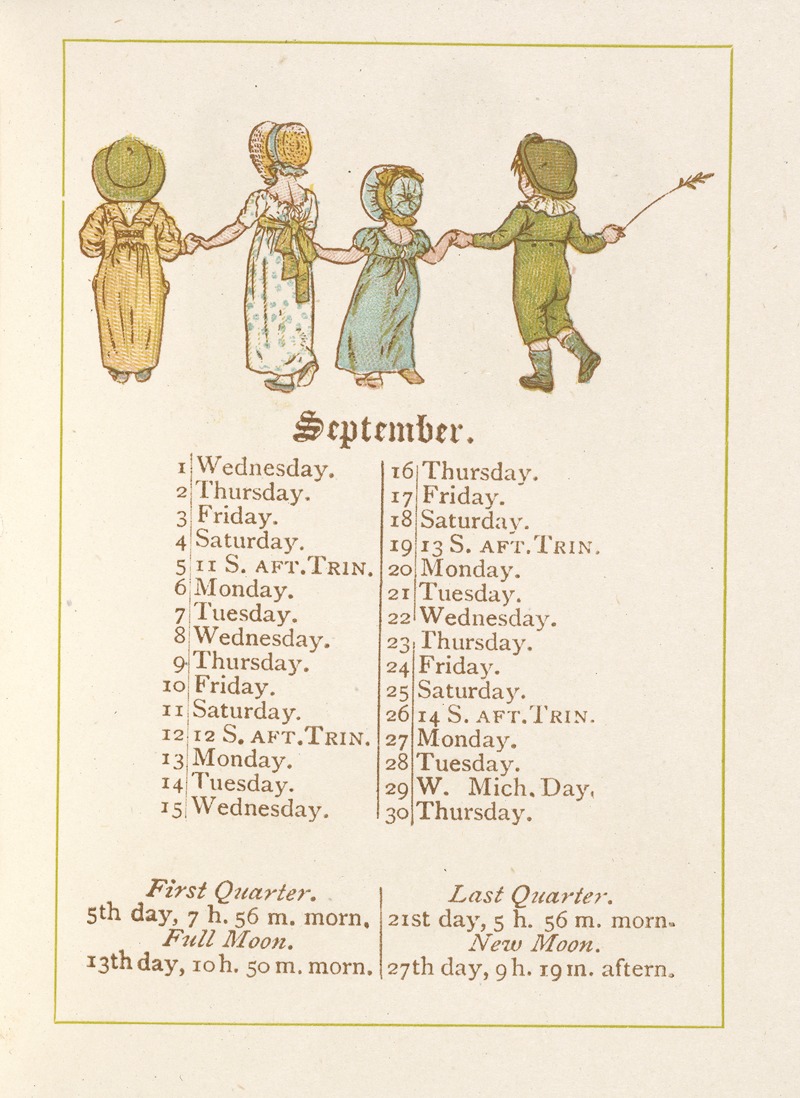 September.
1 Wednesday.
2 Thursday.
3 Friday.
4 Saturday.
5 11 S. AFT. TRIN.
6 Monday.
7 Tuesday.
8 Wednesday.
9 Thursday.
10 Friday.
11 Saturday.
12 12 S. AFT. TRIN.
13 Monday.
14 Tuesday.
15 Wednesday.
16 Thursday.
17 Friday.
18 Saturday.
19 13 S. AFT. TRIN.
20 Monday.
21 Tuesday.
22 Wednesday.
23 Thursday.
24 Friday.
25 Saturday.
26 14 S. AFT. TRIN.
27 Monday.
28 Tuesday.
29 W. Mich. Day.
30 Thursday.
First Quarter.
5th day, 7 h. 56 m. morn.
Full Moon.
13th day, 10 h. 50 m. morn.
Last Quarter.
21st day, 5 h. 56 m. morn.
New Moon.
27th day, 9 h. 19 m. aftern.